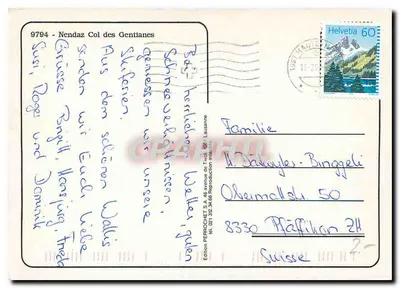 9794 - Nendaz Col des Gentianes
Bei herrlichem Wetter, guten
Schneeverhältnissen,
geniessen wir unsere
Skiferien.
Aus dem schönen Wallis
senden wir Euch liebe
Grüsse Birgitt, Hansjürg, Frieda
Susi, Roger und Dominik
Edition PERROCHET S.A. 46 avenue de Tivoli 1007 Lausanne
Helvetia 60
Familie
Oberwattstr. 50
8330 Pfäffikon ZH
Suisse
2.-